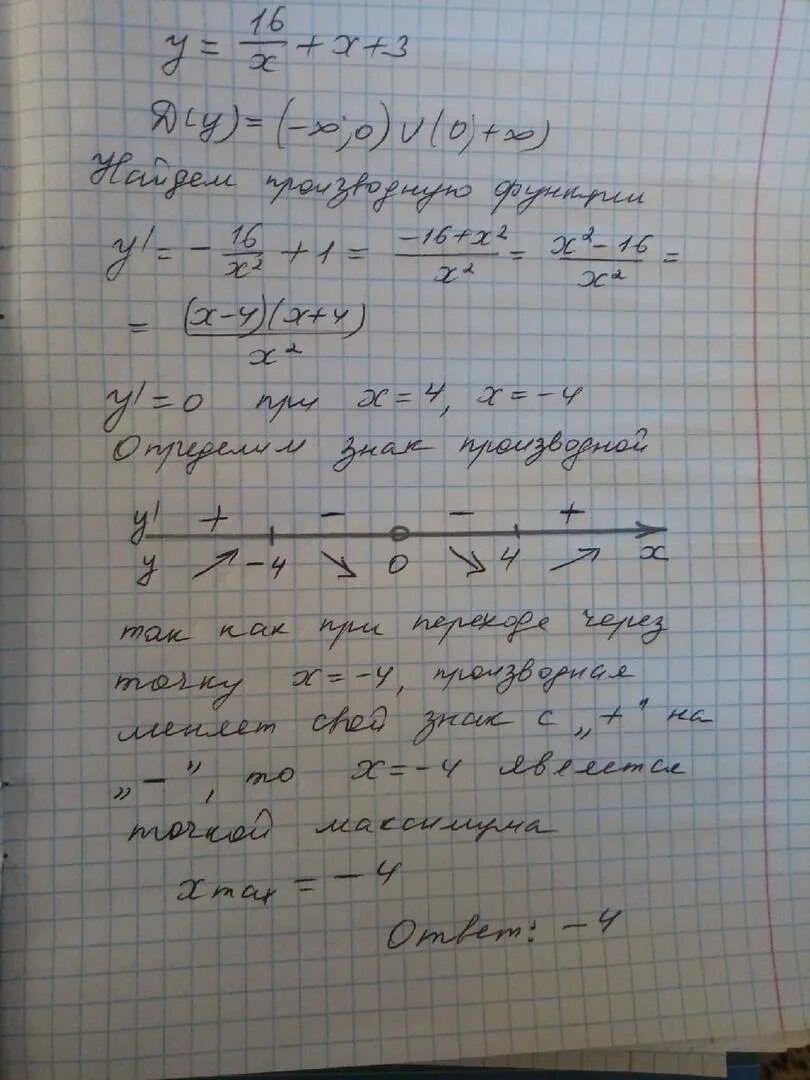 y = 16/x + x + 3
D(y) = (-∞; 0) ∪ (0; +∞)
Найдем производную функции
y' = - 16/x² + 1 = (-16+x²)/x² = (x²-16)/x² =
= (x-4)(x+4)/x²
y' = 0 при x = 4, x = -4
Определим знак производной
y' + - - +
y ↗ -4 ↘ 0 ↘ 4 ↗ x
так как при переходе через
точку x = -4, производная
меняет свой знак с „+" на
„-", то x = -4 является
точкой максимума
x max = -4
Ответ: -4